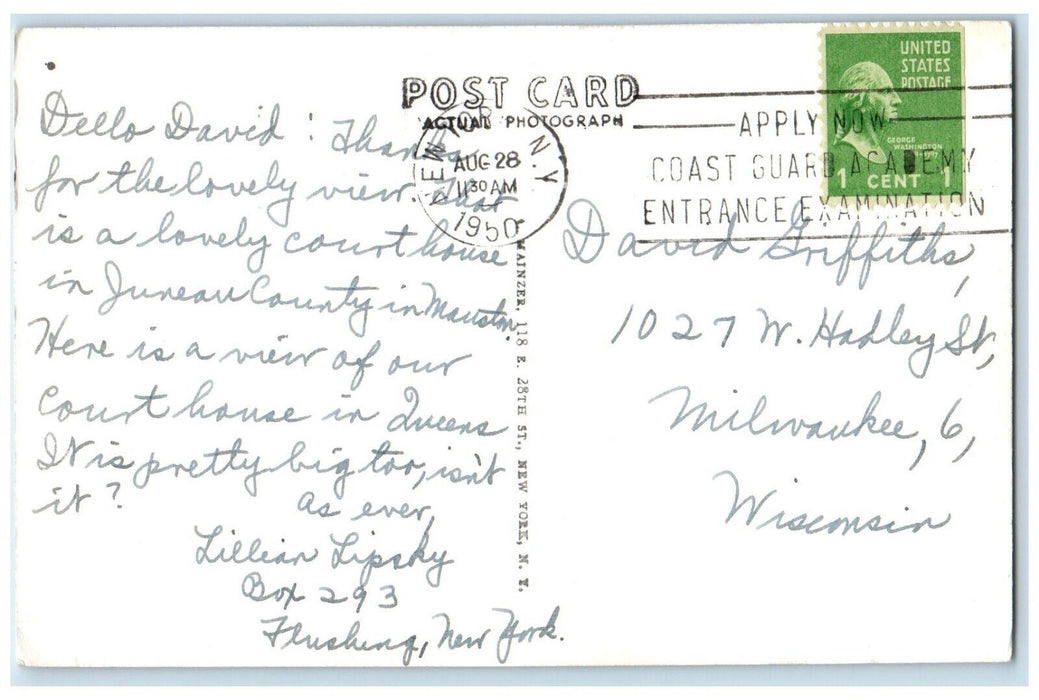 POST CARD
ACTUAL PHOTOGRAPH
NEW YORK, N.Y.
AUG 28
11 30 AM
1950
APPLY NOW
COAST GUARD ACADEMY
ENTRANCE EXAMINATION
UNITED
STATES
POSTAGE
GEORGE
WASHINGTON
1 CENT 1
Dello David: Thanks
for the lovely view. That
is a lovely courthouse
in Juneau County in Mauston.
Here is a view of our
Court house in Queens
It is pretty big too, isn't
it?
As ever,
Lillian Lipsky
Box 293
Flushing, New York.
MAINZER, 118 E. 28TH ST., NEW YORK, N. Y.
David Griffiths,
1027 W. Hadley St,
Milwaukee, 6,
Wisconsin